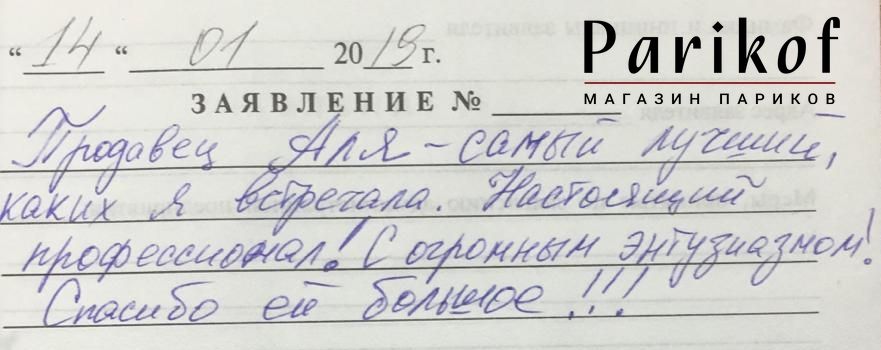 Parikof
МАГАЗИН ПАРИКОВ
“ 14 “ 01 2019 г.
ЗАЯВЛЕНИЕ №
Продавец Аля – самый лучший,
каких я встречала. Настоящий
профессионал! С огромным энтузиазмом!
Спасибо ей большое!!!